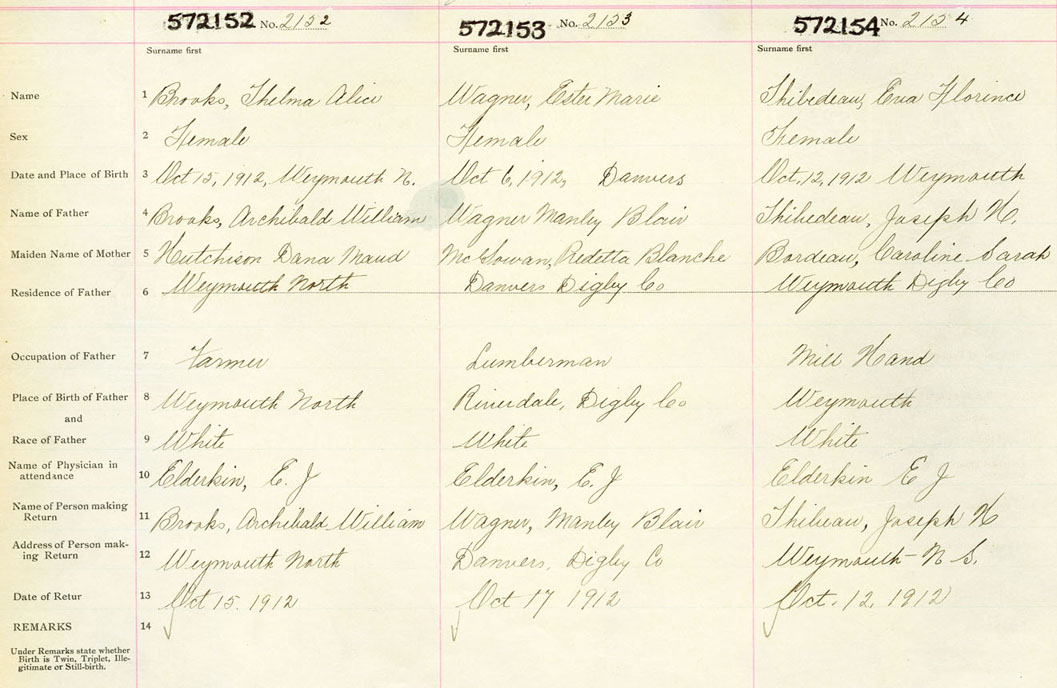 572152 No. 2152 572153 No. 2153 572154 No. 2154
Surname first Surname first Surname first
Name 1 Brooks, Thelma Alice Wagner, Ester Marie Thibedeau, Eva Florence
Sex 2 Female Female Female
Date and Place of Birth 3 Oct 15, 1912, Weymouth N. Oct 6, 1912, Danvers Oct, 12, 1912 Weymouth
Name of Father 4 Brooks, Archibald William Wagner Manley Blair Thibedeau, Joseph H.
Maiden Name of Mother 5 Hutchison Dana Maud McGowan, Redetta Blanche Bordeau, Caroline Sarah
Residence of Father 6 Weymouth North Danvers Digby Co Weymouth Digby Co
Occupation of Father 7 Farmer Lumberman Mill Hand
Place of Birth of Father 8 Weymouth North Riverdale, Digby Co Weymouth
and
Race of Father 9 White White White
Name of Physician in
attendance 10 Elderkin, E. J Elderkin, E. J Elderkin E J
Name of Person making
Return 11 Brooks, Archibald William Wagner, Manley Blair Thibeau, Joseph H
Address of Person mak-
ing Return 12 Weymouth North Danvers, Digby Co Weymouth N S.
Date of Retur 13 Oct 15, 1912 Oct 17 1912 Oct. 12, 1912
REMARKS 14
Under Remarks state whether
Birth is Twin, Triplet, Ille-
gitimate or Still-birth.